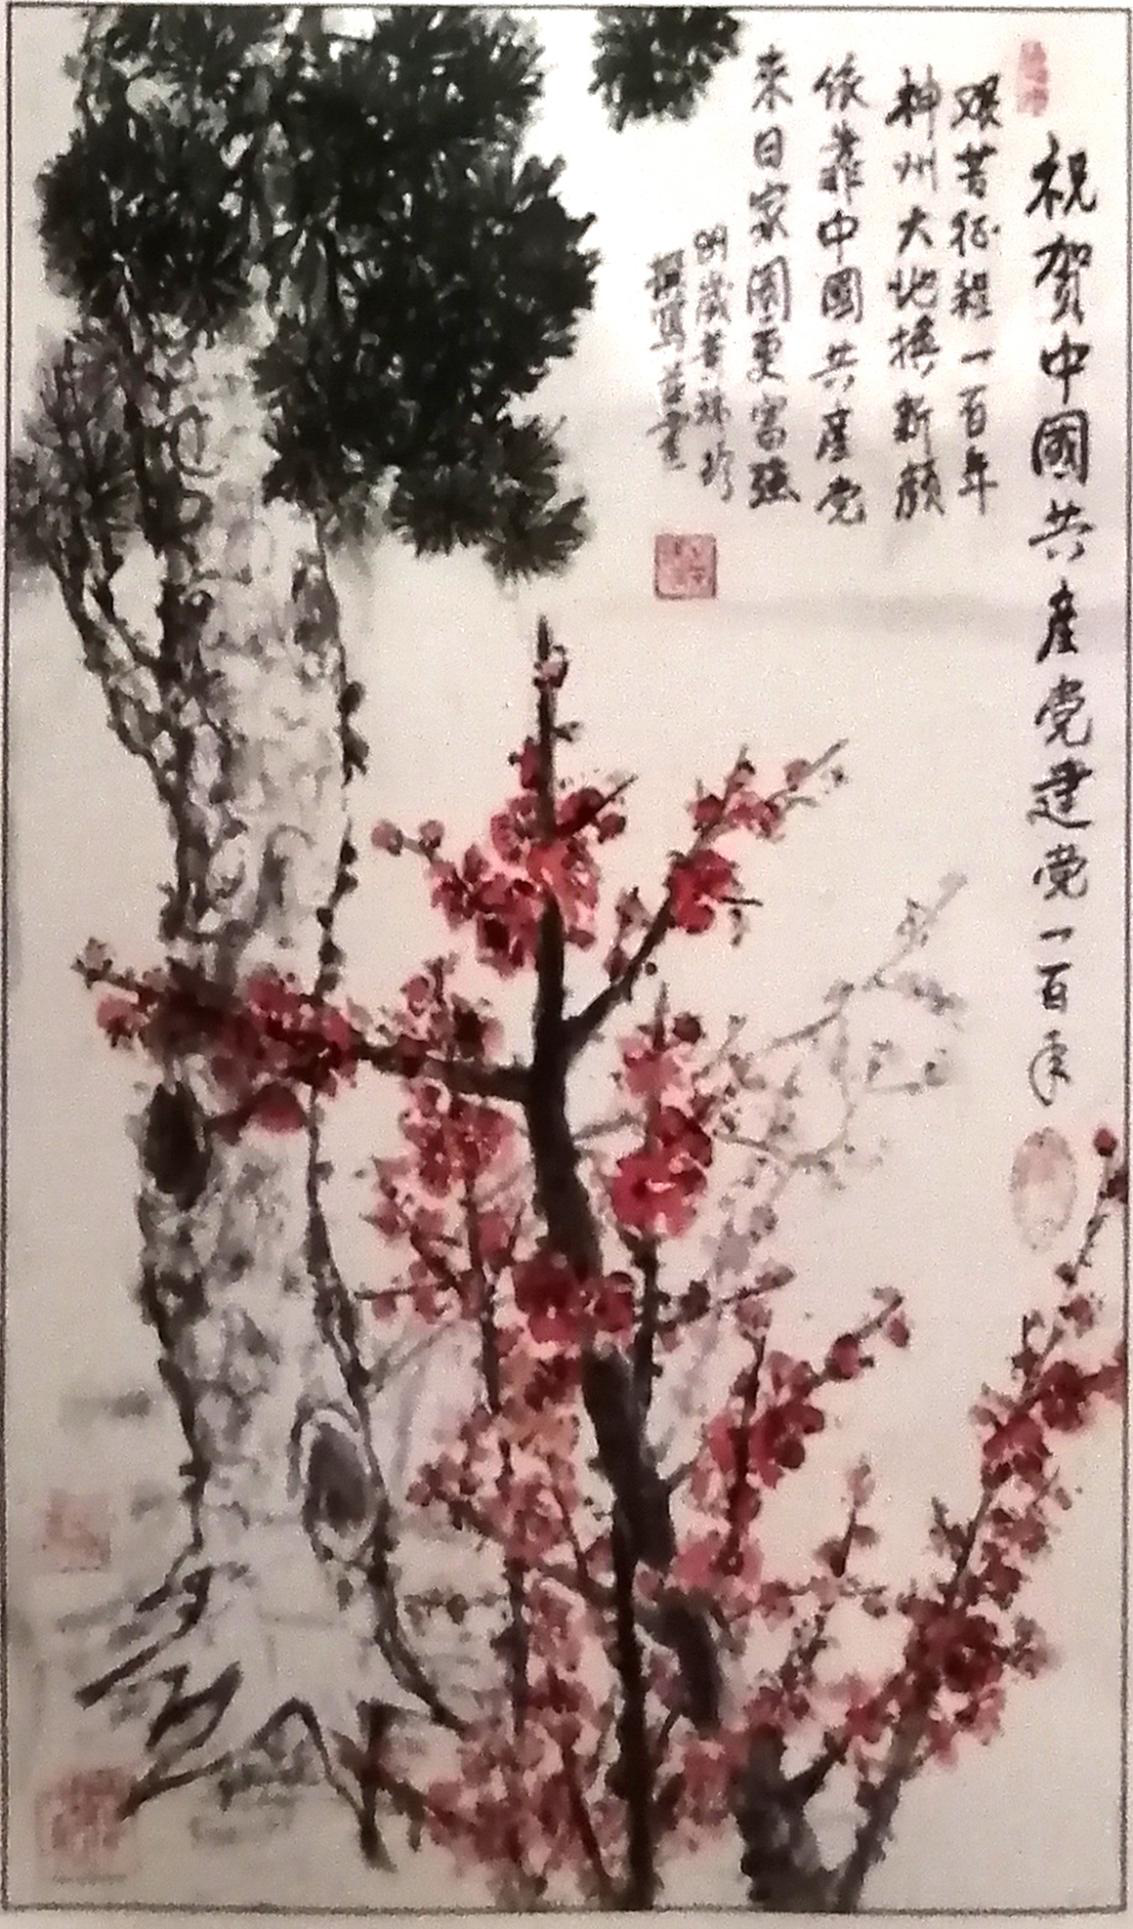 祝贺中國共產党建党一百年
艰苦征程一百年
神州大地換新顏
依靠中國共產党
来日家園更富强
89歲黄瑞珍
撰寫並書